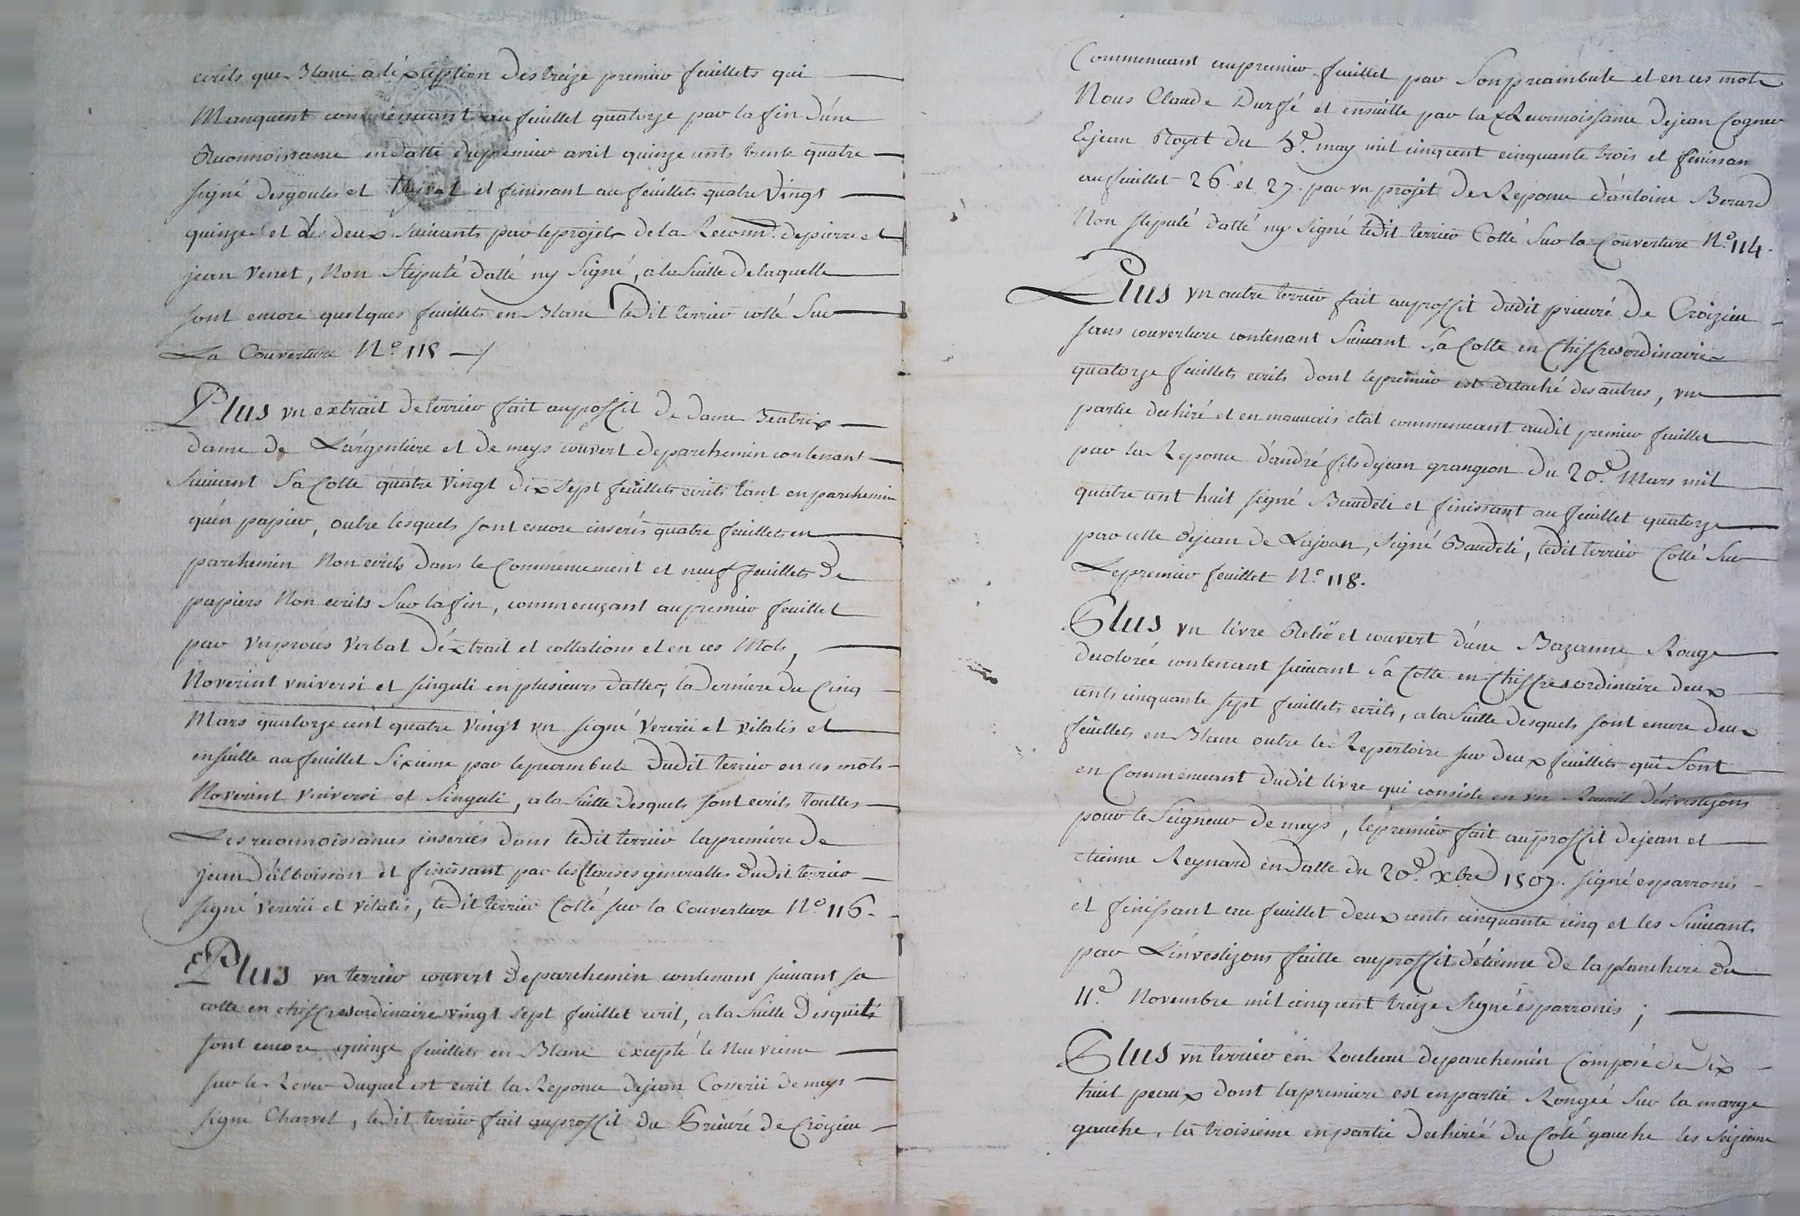 ecrits que Blanc a l'éxception des treize premiers feuillets qui
Manquent commencant au feuillet quatorze par la fin d'une
Reconnoissance en datte du premier avril quinze cents trente quatre
signé desgoules et et finissant au feuillets quatre Vingt
quinze et les deux Suivants par le projet de la Reconn.ce de pierre et
jean Venet, Non Stipulé datté ny Signé, a la Suitte de laquelle
sont encore quelques feuillets en Blanc ledit terrier cotté Sur
La Couverture N.º 115
Plus vn extrait de terrier fait au proffit de dame Beatrix
dame de L'argentiere et de meys couvert de parchemin contenant
Suivant Sa Cotte quatre Vingt dix sept feuillets ecrits tant en parchemin
qu'en papier, outre lesquels sont encore inserés quatre feuillets en
parchemin Non ecrits dans le Commencement et neuf feuillets de
papiers Non ecrits Sur la fin, commençant au premier feuillet
par vn procés verbal d'éxtrait et collations et en ces Mots,
Noverint vniversi et singuli en plusieurs dattes, la derniere du Cinq
Mars quatorze cent quatre vingt vn signé Vererii et vitalis et
ensuitte au feuillet Sixieme par le preambule dudit terrier en ces mots
Noverint vniversi et Singuli, a la Suitte desquels sont ecrits touttes
Les reconnoissances inserées dans ledit terrier la premiere de
jean d'alboisson et finissant par les Clauses generalles dudit terrier
signé Vererii et Vitalis, ledit terrier Cotté sur la Couverture N.º 116.
Plus vn terrier couvert de parchemin contenant suivant sa
cotte en chiffres ordinaires vingt sept feuillet ecrit, a la Suitte desquels
sont encore quinze feuillets en Blanc excepté le Neuvieme
sur le Revers duquel est ecrit la Reponce de jean Cosserii de meys
signe Charvet, ledit terrier fait au proffit du Prieuré de Croizieu
Commencant au premier feuillet par Son preambule et en ces mots
Nous Claude Durfé et ensuitte par la Reconnoissance de jean Cognet
& jean Royet du 5.e may mil cinq cent cinquante trois et finissan
au feuillet 26 et 27. par vn projet de Reponce d'antoine Berard
Non stipulé datté ny signé ledit terrier Cotté Sur la Couverture N.º 114.
Plus vn autre terrier fait au proffit dudit prieuré de Croizieu
sans couverture contenant Suivant Sa Cotte en Chiffres ordinaires
quatorze feuillets ecrits dont le premier est detaché des autres, vne
partie dechiré et en mauvais etat commencant audit premier feuillet
par la Reponce d'andré fils de jean grangeon du 20.e Mars mil
quatre cent huit signé Baudeti et finissant au feuillet quatorze
par celle de jean de Lajoan, signé Baudeti, ledit terrier Cotté Sur
Le premier feuillet N.º 118.
Plus vn livre Relié et couvert d'une Bazanne Rouge
decolorée contenant suivant Sa Cotte en Chiffres ordinaire deux
cents cinquante sept feuillets ecrits, a la Suitte desquels sont encore deux
feuillets en Blanc outre le Repertoire sur deux feuillets qui Sont
en Commencant dudit livre qui consiste en vn Recueil d'investizons
pour le Seigneur de meys, le premier fait au proffit de jean et
etienne Reynard en datte du 20.e xbre 1507. signé esparronis
et finissant au feuillet deux cents cinquante cinq et les Suivants
par L'investizons faitte au proffit d'etienne de la planchere du
11.e Novembre mil cinq cent treize Signé esparronis;
Plus vn terrier en Rouleau de parchemin Composé de dix
huit peaux dont la premiere est en partie Rongée Sur la marge
gauche, la troisieme en partie dechirée du Coté gauche les seizieme